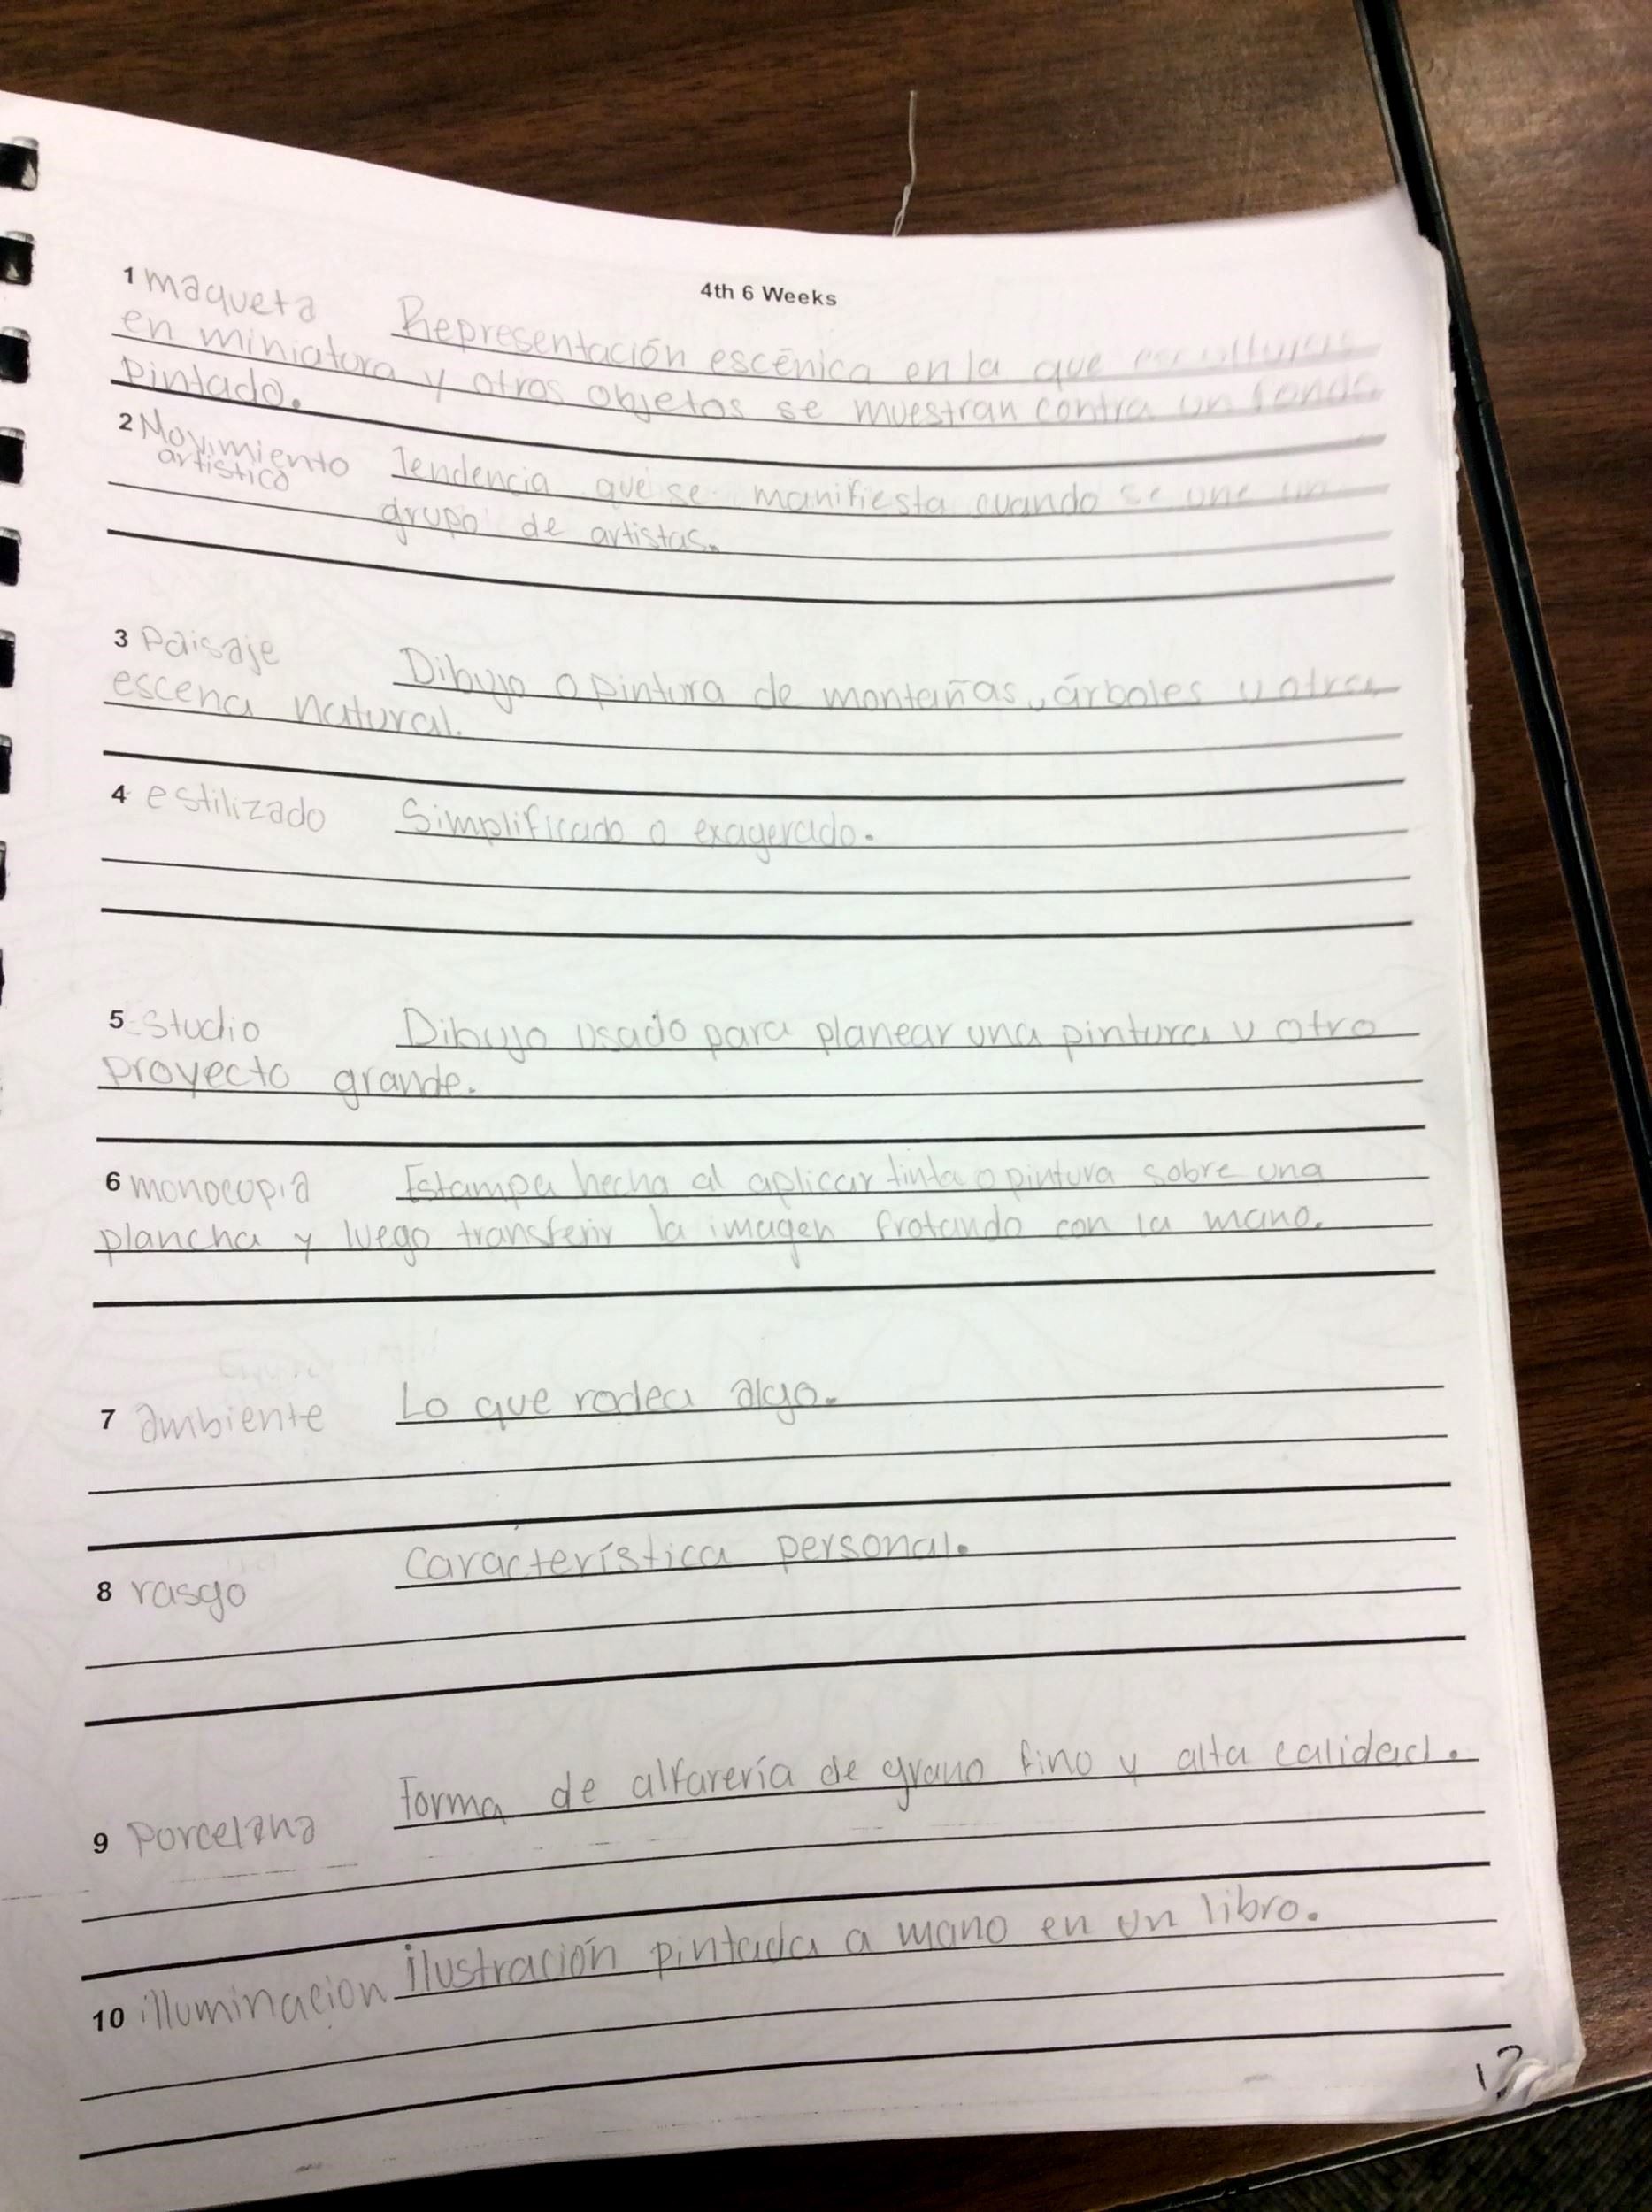 4th 6 Weeks
1 maqueta Representación escénica en la que esculturas
en miniatura y otros objetos se muestran contra un fondo
pintado.
2 Movimiento artistico Tendencia que se manifiesta cuando se une un
grupo de artistas.
3 Paisaje Dibujo o pintura de montañas, árboles u otra
escena natural.
4 estilizado Simplificado o exagerado.
5 Estudio Dibujo usado para planear una pintura u otro
proyecto grande.
6 monocopia Estampa hecha al aplicar tinta o pintura sobre una
plancha y luego transferir la imagen frotando con la mano.
7 ambiente Lo que rodea algo.
8 rasgo Característica personal.
9 Porcelana Forma de alfarería de grano fino y alta calidad.
10 illuminacion ilustración pintada a mano en un libro.